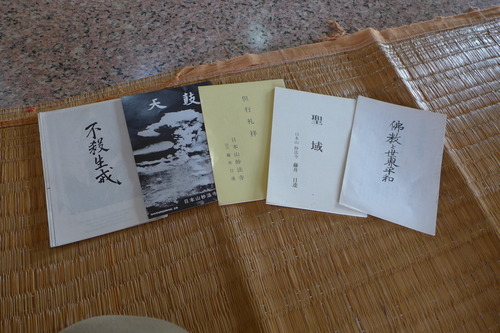 不殺生戒
天鼓
日本山妙法寺
但行礼拝
日本山妙法寺
聖域
日本山妙法寺 藤井日達
佛教と世界平和